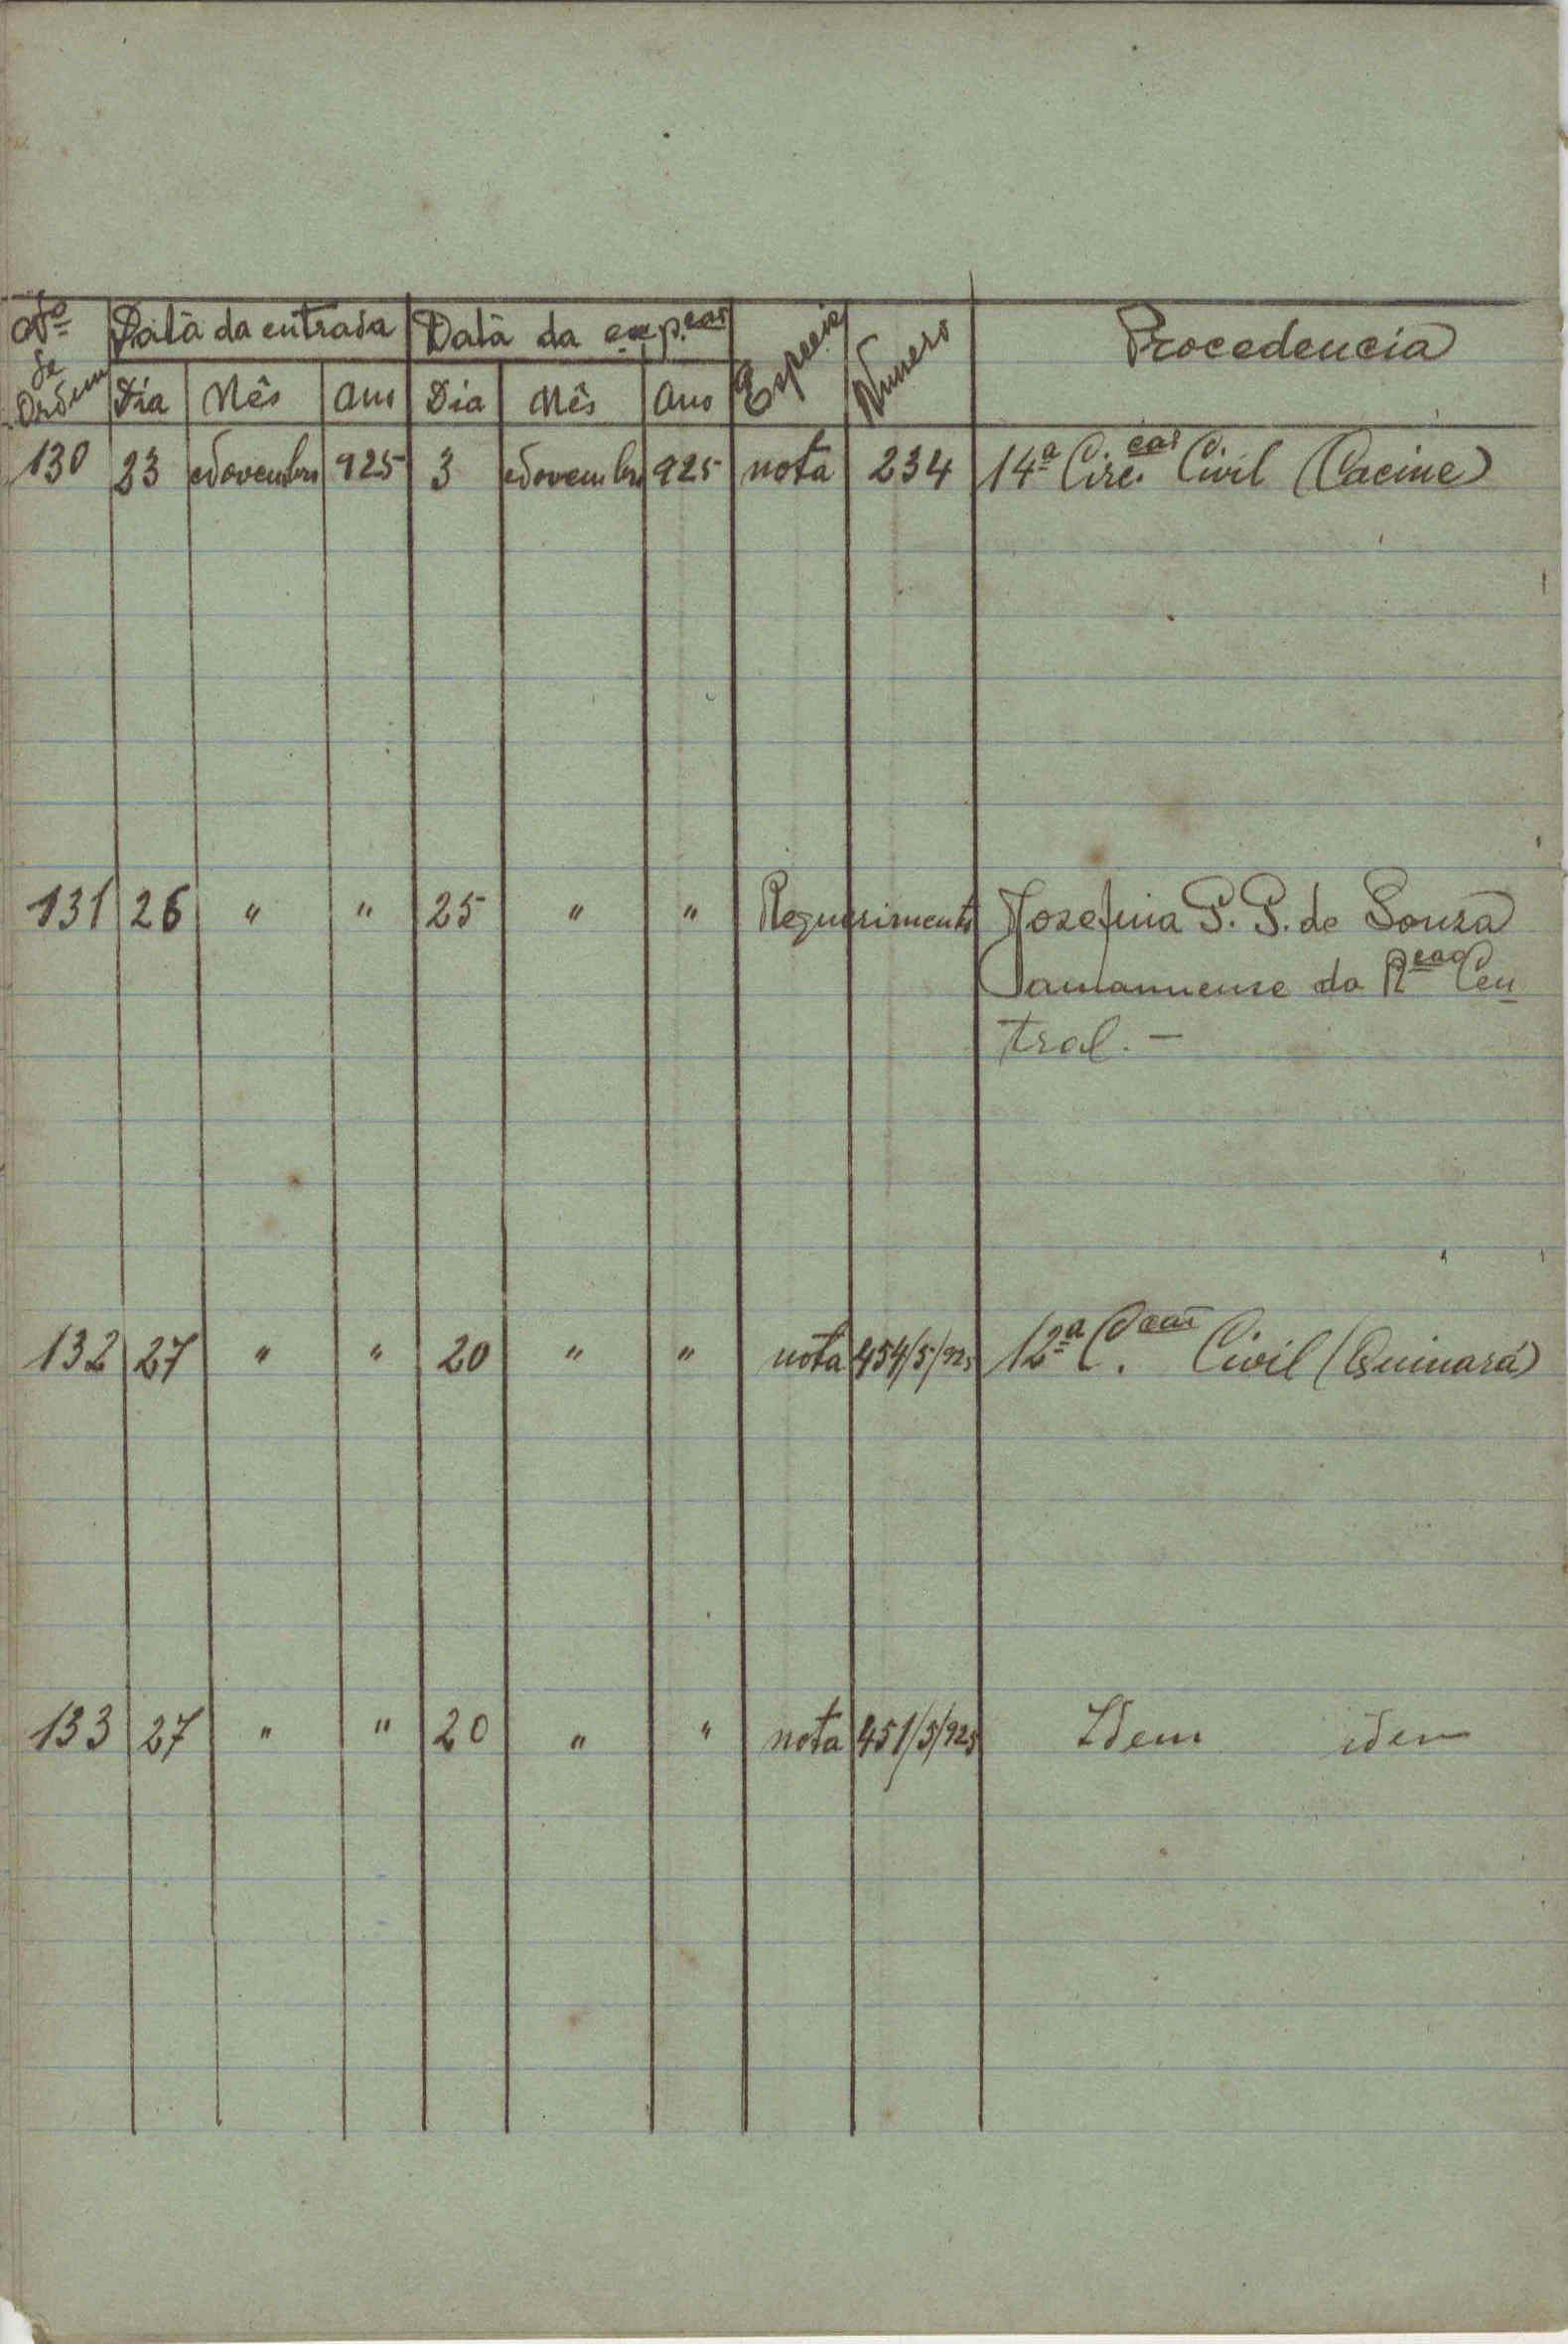 Nº de Ordem Data da entrada Data da exp.ção Especie Numero Procedencia
Dia Mês Ano Dia Mês Ano
130 23 Novembro 925 3 Novembro 925 nota 234 14ª Circ.ção Civil (Cacine)
131 26 " " 25 " " Requerimento Josefina P. P. de Souza
amanuense da Rção Cen
tral. —
132 27 " " 20 " " nota 454/5/925 12ª C.ção Civil (Quinará)
133 27 " " 20 " " nota 451/5/925 Idem idem